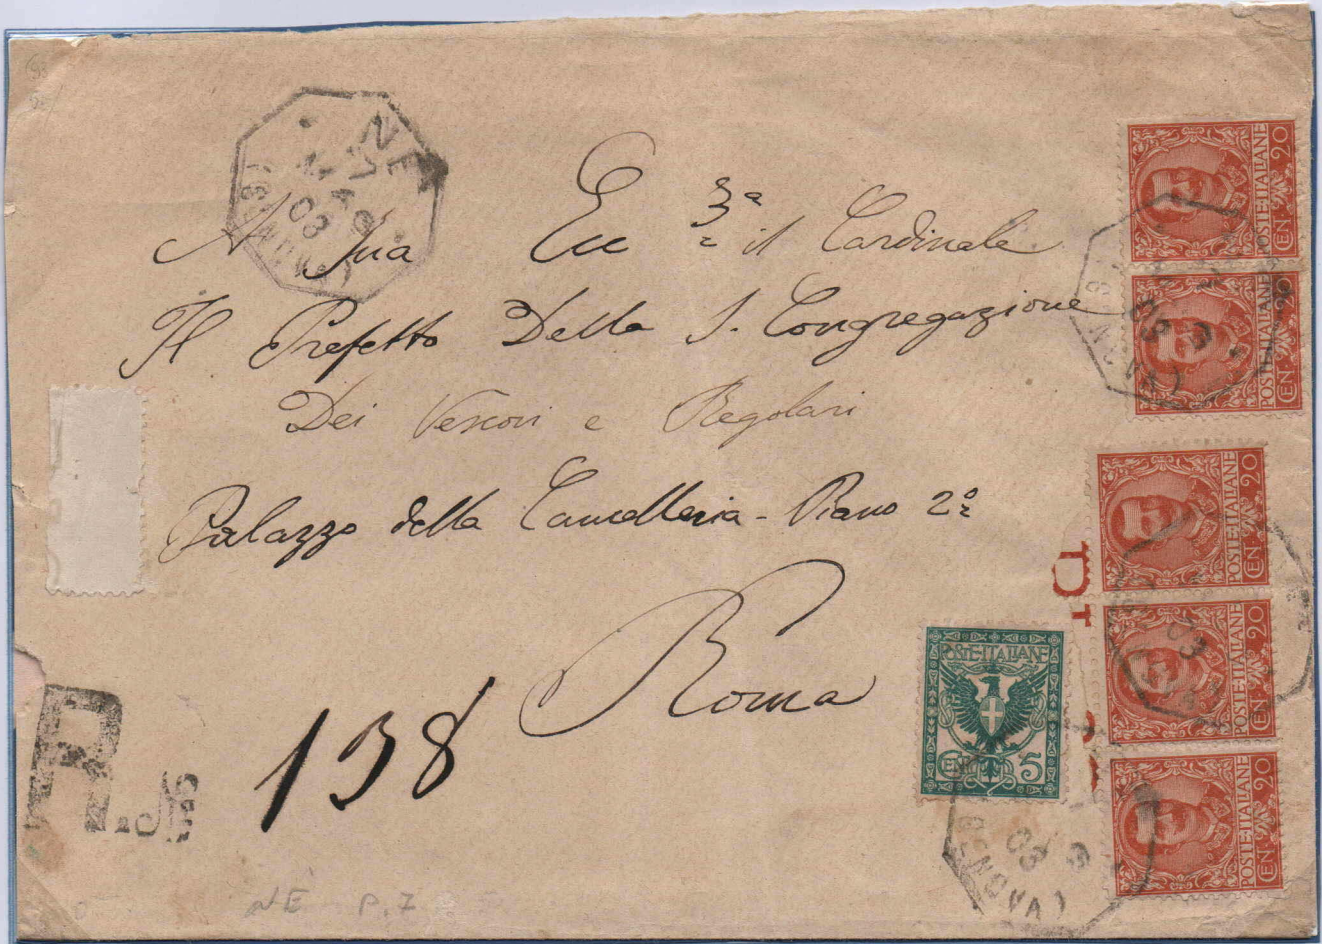 NE
MAG
03
(GENOVA)
A Sua Ecc 3ª il Cardinale
Il Prefetto Della S. Congregazione
Dei Vescovi e Regolari
Palazzo della Cancelleria - Piano 2º
Roma
R.
138
NE P.7
POSTE·ITALIANE
CENT. 5
POSTE·ITALIANE CEN 20
POSTE·ITALIANE CEN 20
POSTE·ITALIANE CEN 20
POSTE·ITALIANE CEN 20
POSTE·ITALIANE CEN 20
DI
03
(GENOVA)
03
03
(GENOVA)